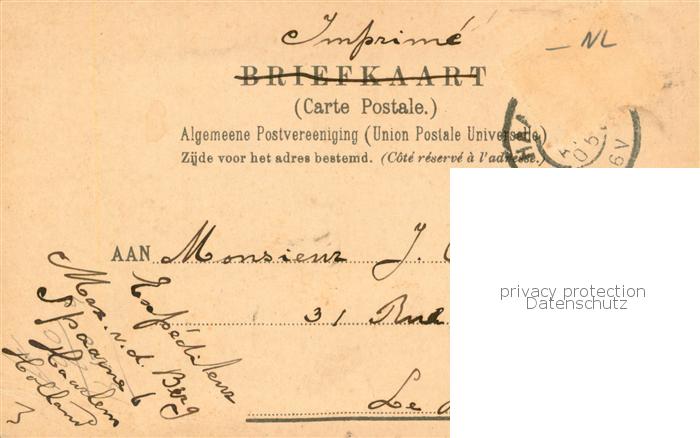 Imprimé
— NL
BRIEFKAART
(Carte Postale.)
Algemeene Postvereeniging (Union Postale Universelle)
Zijde voor het adres bestemd. (Côté réservé à l'adresse.)
HA
05
6V
AAN Monsieur J.
31 Rue
Le
Expéditeur
Max. v. d. Berg
Haarlem
Holland
privacy protection
Datenschutz